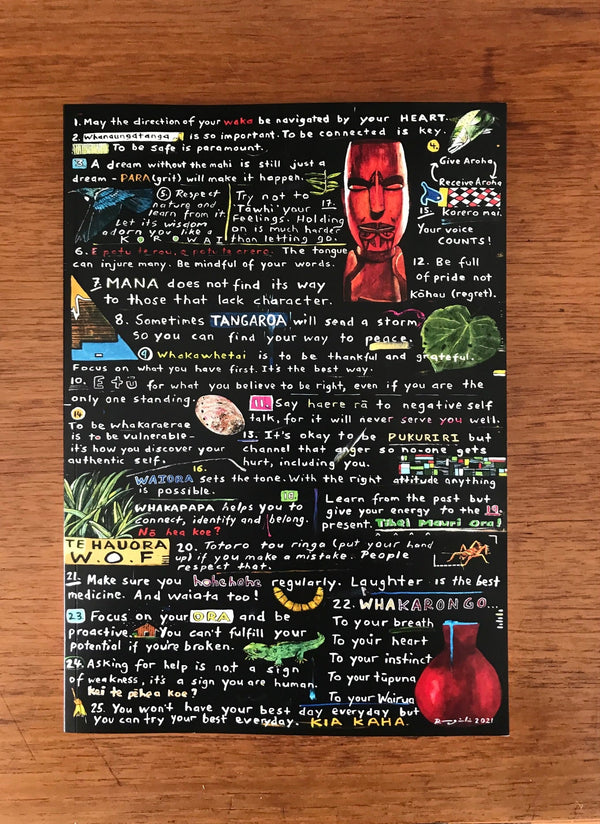 1. May the direction of your waka be navigated by your HEART.
2. Whanaungatanga is so important. To be connected is key.
To be safe is paramount.
3. A dream without the mahi is still just a
dream - PARA (grit) will make it happen.
4.
Give Aroha
Receive Aroha
5. Respect
nature and
learn from it.
Let its wisdom
adorn you like a
KOROWAI
Try not to
17.
Tāwhi your
Feelings. Holding
on is much harder
than letting go.
15. Korero mai.
Your voice
COUNTS!
6. E patu te rau, e patu te arero. The tongue
can injure many. Be mindful of your words.
12. Be full
of pride not
Kōhau (regret).
7. MANA does not find its way
to those that lack character.
8. Sometimes TANGAROA will send a storm
so you can find your way to peace.
9 Whakawhetai is to be thankful and grateful.
Focus on what you have first. It's the best way.
10. E tū for what you believe to be right, even if you are the
only one standing.
11. Say haere rā to negative self
talk, for it will never serve you well.
14
To be whakaraerae
is to be vulnerable -
it's how you discover your
authentic self.
13. It's okay to be PUKURIRI but
channel that anger so no-one gets
hurt, including you.
16.
WAIORA sets the tone. With the right attitude anything
is possible.
18.
WHAKAPAPA helps you to
connect, identify and belong.
Nō hea koe?
Learn from the past but
give your energy to the 19.
present. Tihei Mauri Ora!
TE HAUORA
W.O.F
20. Totoro tou ringa (put your hand
up) if you make a mistake. People
respect that.
21. Make sure you hohehohe regularly. Laughter is the best
medicine. And waiata too!
22. WHAKARONGO...
To your breath
To your heart
To your instinct
To your tūpuna
To your Wairua
23. Focus on your ORA and be
proactive. You can't fulfill your
potential if you're broken.
24. Asking for help is not a sign
of weakness, it's a sign you are human.
Kei te pēhea koe?
25. You won't have your best day everyday but
you can try your best everyday. KIA KAHA.
2021